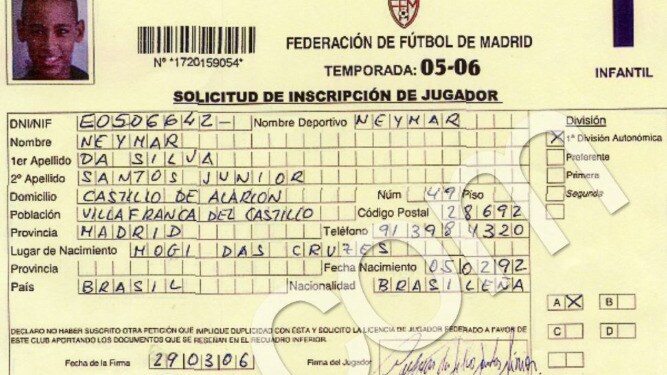 FFM
Nº *1720159054*
FEDERACIÓN DE FÚTBOL DE MADRID
TEMPORADA: 05-06
INFANTIL
SOLICITUD DE INSCRIPCIÓN DE JUGADOR
DNI/NIF E0506642- Nombre Deportivo NEYMAR División
Nombre NEYMAR X 1ª División Autonómica
1er Apellido DA SILVA Preferente
2º Apellido SANTOS JUNIOR Primera
Domicilio CASTILLO DE ALARION Núm 49 Piso Segunda
Población VILLAFRANCA DEL CASTILLO Código Postal 28692
Provincia MADRID Teléfono 913984320
Lugar de Nacimiento MOGI DAS CRUZES
Provincia Fecha Nacimiento 050292
País BRASIL Nacionalidad BRASILEÑA
A X B
C D
DECLARO NO HABER SUSCRITO OTRA PETICIÓN QUE IMPLIQUE DUPLICIDAD CON ÉSTA Y SOLICITO LA LICENCIA DE JUGADOR FEDERADO A FAVOR DE
ESTE CLUB APORTANDO LOS DOCUMENTOS QUE SE RESEÑAN EN EL RECUADRO INFERIOR.
Fecha de la Firma 290306 Firma del Jugador
.com